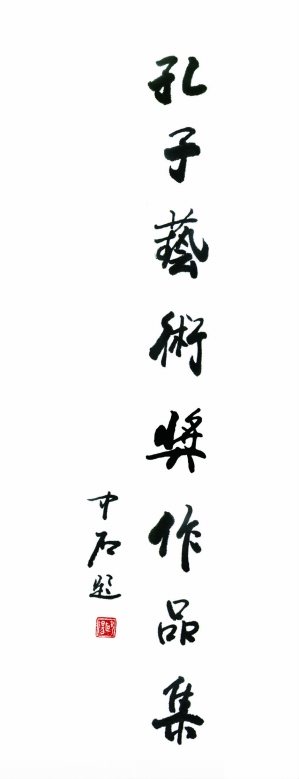 孔子藝術獎作品集
中石題